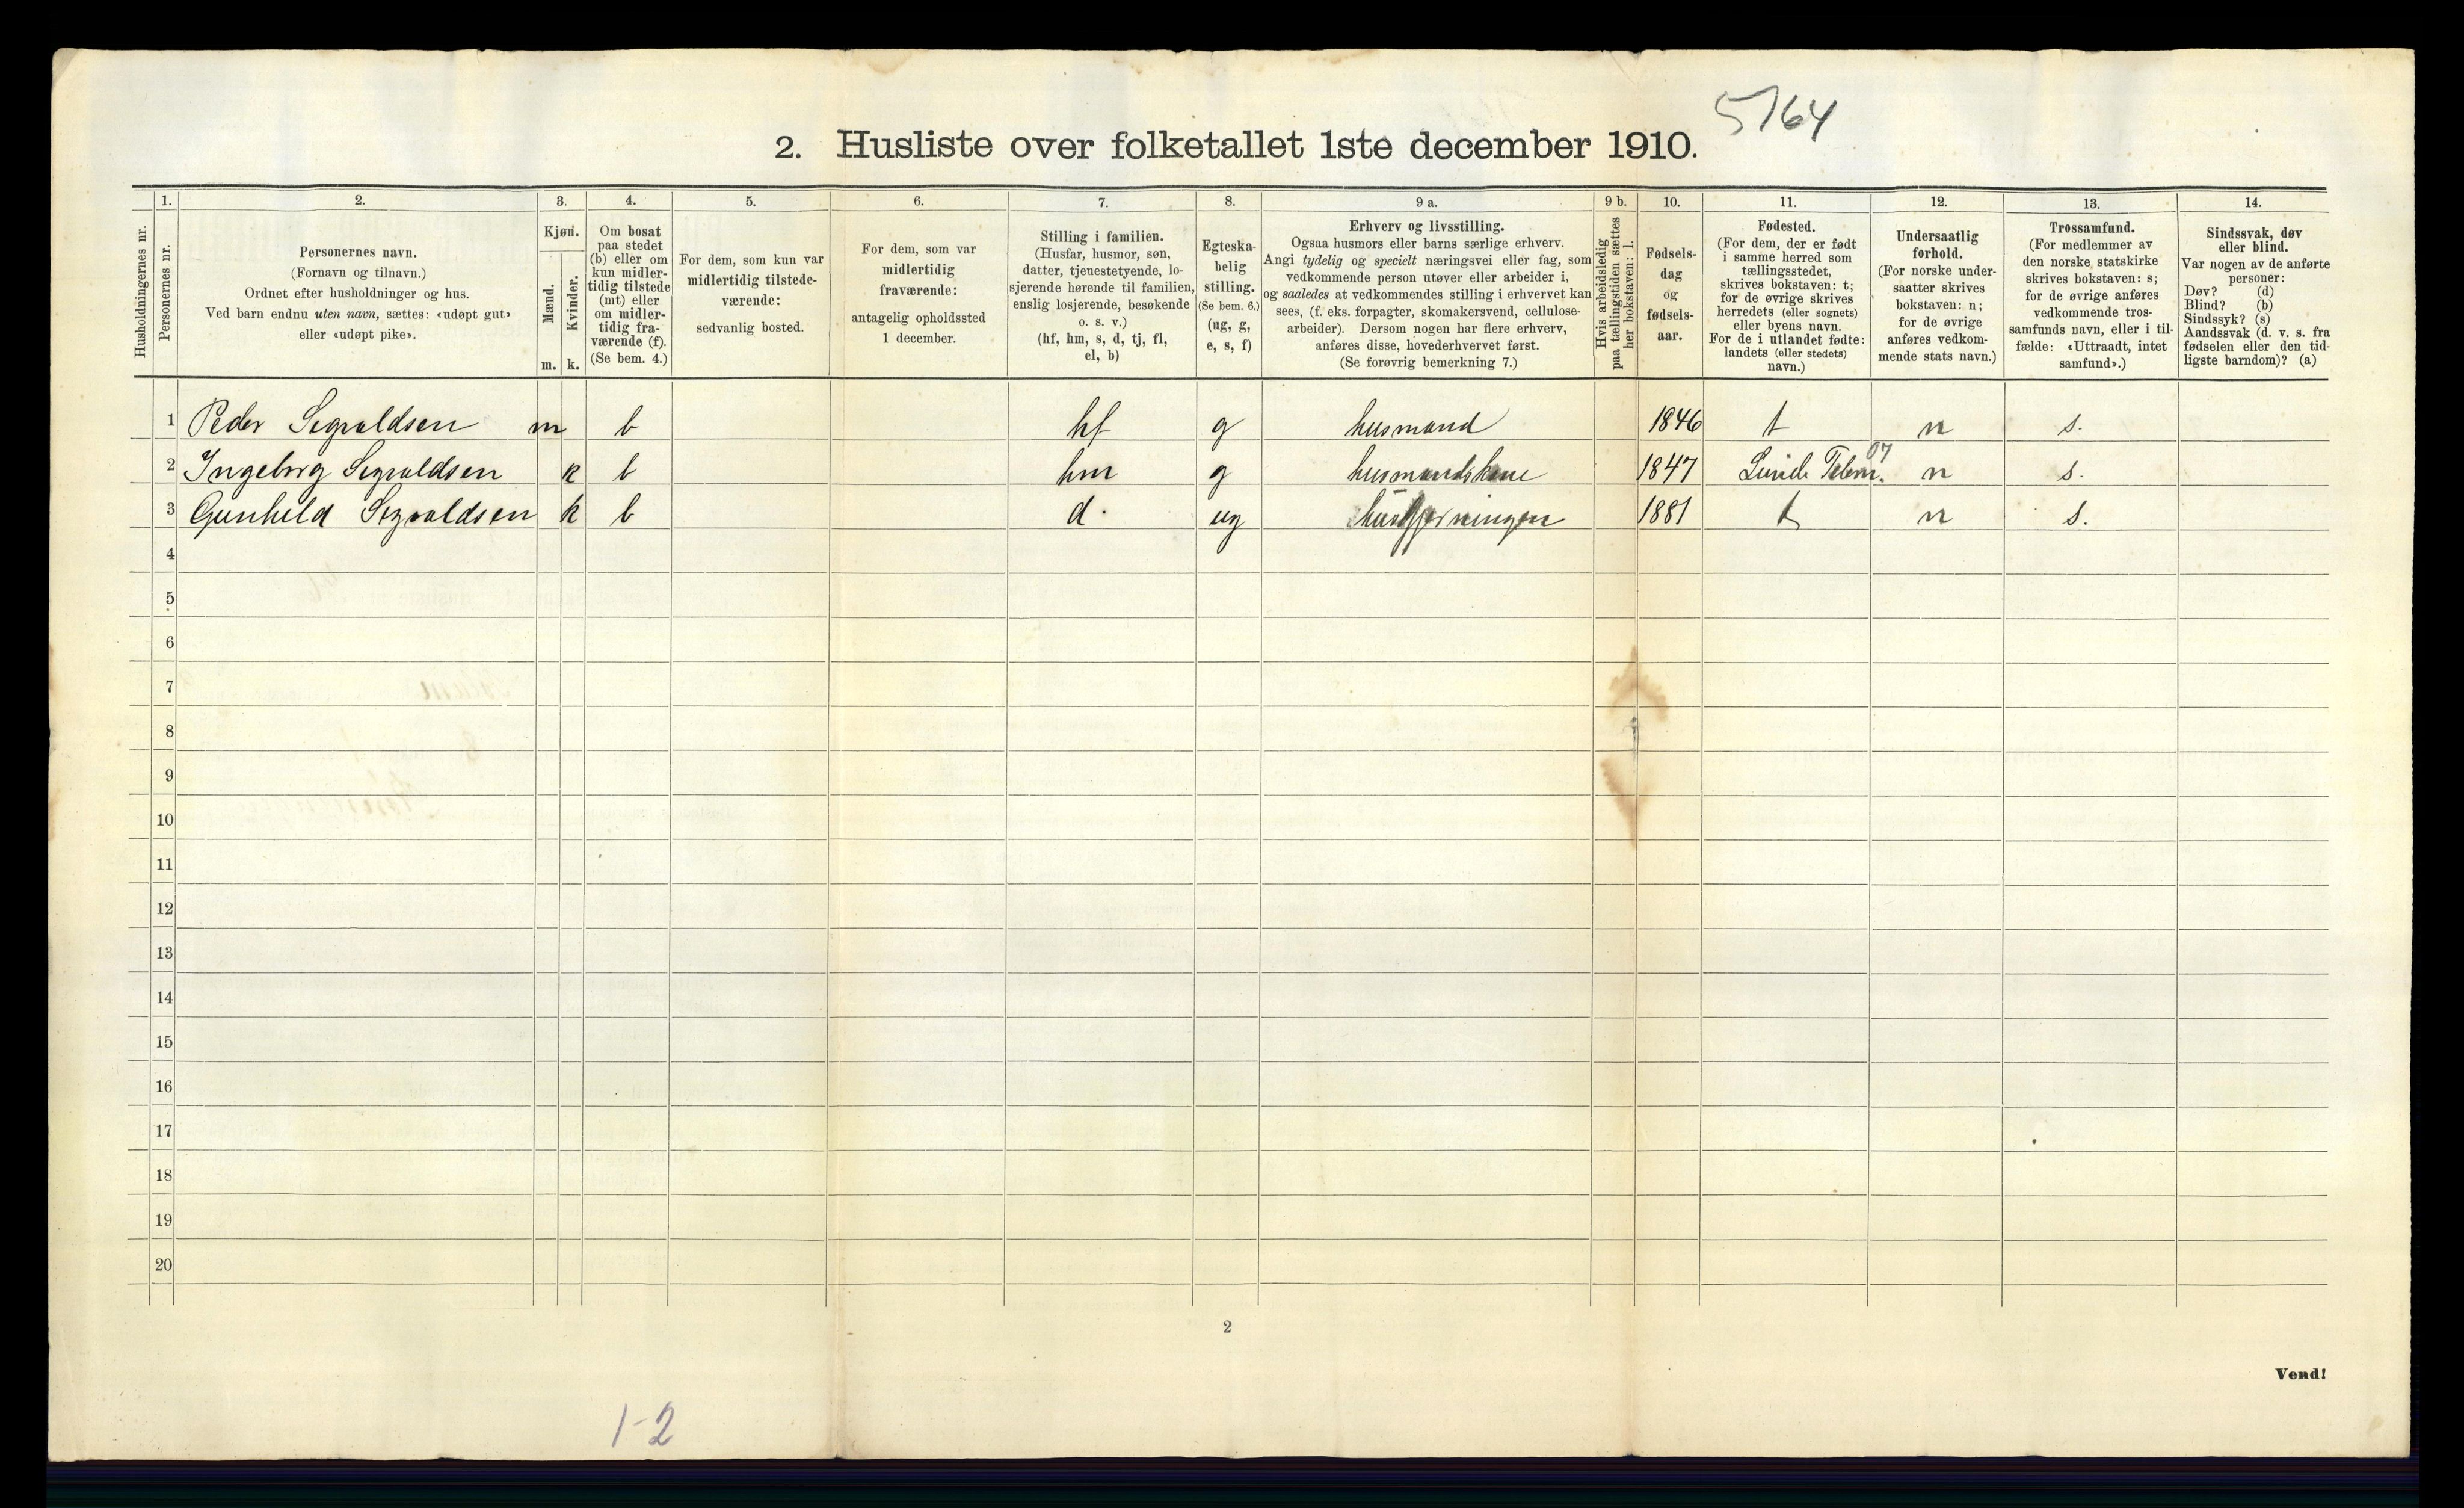 5764
2. Husliste over folketallet 1ste december 1910.
Husholdningernes nr.
1.
Personernes nr.
2.
Personernes navn.
(Fornavn og tilnavn.)
Ordnet efter husholdninger og hus.
Ved barn endnu uten navn, sættes: «udøpt gut»
eller «udøpt pike».
3.
Kjøn.
Mænd.
Kvinder.
m. k.
4.
Om bosat
paa stedet
(b) eller om
kun midler-
tidig tilstede
(mt) eller
om midler-
tidig fra-
værende (f).
(Se bem. 4.)
5.
For dem, som kun var
midlertidig tilstede-
værende:
sedvanlig bosted.
6.
For dem, som var
midlertidig
fraværende:
antagelig opholdssted
1 december.
7.
Stilling i familien.
(Husfar, husmor, søn,
datter, tjenestetyende, lo-
sjerende hørende til familien,
enslig losjerende, besøkende
o. s. v.)
(hf, hm, s, d, tj, fl,
el, b)
8.
Egteska-
belig
stilling.
(Se bem. 6.)
(ug, g,
e, s, f)
9 a.
Erhverv og livsstilling.
Ogsaa husmors eller barns særlige erhverv.
Angi tydelig og specielt næringsvei eller fag, som
vedkommende person utøver eller arbeider i,
og saaledes at vedkommendes stilling i erhvervet kan
sees, (f. eks. forpagter, skomakersvend, cellulose-
arbeider). Dersom nogen har flere erhverv,
anføres disse, hovederhvervet først.
(Se forøvrig bemerkning 7.)
9 b.
Hvis arbeidsledig
paa tællingstiden sættes
her bokstaven: l.
10.
Fødsels-
dag
og
fødsels-
aar.
11.
Fødested.
(For dem, der er født
i samme herred som
tællingsstedet,
skrives bokstaven: t;
for de øvrige skrives
herredets (eller sognets)
eller byens navn.
For de i utlandet fødte:
landets (eller stedets)
navn.)
12.
Undersaatlig
forhold.
(For norske under-
saatter skrives
bokstaven: n;
for de øvrige
anføres vedkom-
mende stats navn.)
13.
Trossamfund.
(For medlemmer av
den norske statskirke
skrives bokstaven: s;
for de øvrige anføres
vedkommende tros-
samfunds navn, eller i til-
fælde: «Uttraadt, intet
samfund».)
14.
Sindssvak, døv
eller blind.
Var nogen av de anførte
personer:
Døv? (d)
Blind? (b)
Sindssyk? (s)
Aandssvak (d. v. s. fra
fødselen eller den tid-
ligste barndom)? (a)
1 Peder Segvaldsen m b hf g husmand 1846 t n s.
2 Ingeborg Segvaldsen k b hm g husmandskone 1847 Lunde Telem. 07 n s.
3 Gunhild Segvaldsen k b d. ug husgjerningen 1881 t n s.
4
5
6
7
8
9
10
11
12
13
14
15
16
17
18
19
20
2
Vend!
1-2